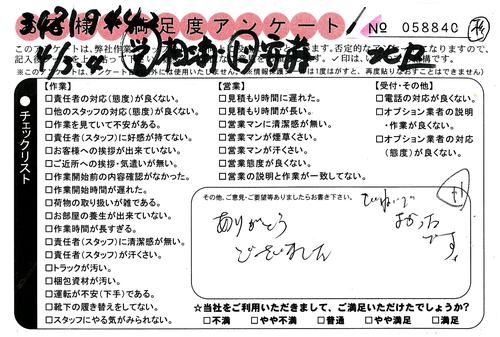 お客様の満足度アンケート
No 058840
このアンケートは、弊社作業
記入後
【作業】
□責任者の対応(態度)が良くない。
□他のスタッフの対応(態度)が良くない。
□作業を見ていて不安がある。
□責任者(スタッフ)に好感が持てない。
□お客様への挨拶が出来ていない。
□ご近所への挨拶・気遣いが無い。
□作業開始前の内容確認がなかった。
□作業開始時間が遅れた。
□荷物の取り扱いが雑である。
□お部屋の養生が出来ていない。
□作業時間が長すぎる。
□責任者(スタッフ)に清潔感が無い。
□責任者(スタッフ)が汗くさい。
□トラックが汚い。
□梱包資材が汚い。
□運転が不安(下手)である。
□靴下の履き替えをしてない。
□スタッフにやる気がみられない。
【営業】
□見積もり時間に遅れた。
□見積もり時間が長い。
□営業マンに清潔感が無い。
□営業マンが煙草くさい。
□営業マンが汗くさい。
□営業態度が良くない。
□営業の説明と作業が一致してない。
【受付・その他】
□電話の対応が良くない。
□オプション業者の説明
・作業が良くない。
□オプション業者の対応
(態度)が良くない。
チェックリスト
その他、ご意見・ご要望等ありましたらお書き下さい。
ありがとう
ございました
ていねいで
よかった
です。
☆当社をご利用いただきまして、ご満足いただけたでしょうか?
□不満 □やや不満 □普通 □やや満足 □満足